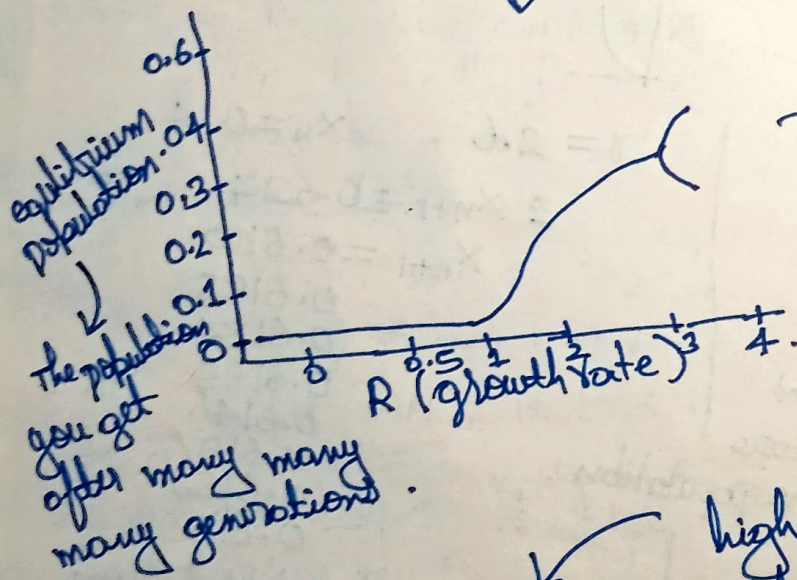 0.6
0.4
0.3
0.2
0.1
0
equilibrium
population.
The population
you get
after many many
many generations.
0 0.5 1 2 3 4.
R (growth rate)
high